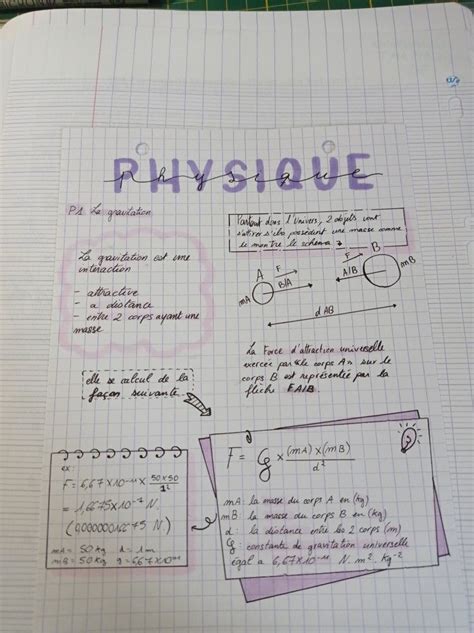 PHYSIQUE
physique
P1. La gravitation
La gravitation est une
interaction
- attractive
- a distance
- entre 2 corps ayant une
masse
Partout dans l'Univers, 2 objets vont
s'attirer s'ils possèdent une masse comme
le montre le schema
A
F
B/A
mA
F
A/B
B
mB
d AB
La Force d'attraction universelle
exercée par le corps A sur le
corps B est représentée par la
flèche FA/B.
elle se calcul de la
façon suivante
ex:
F = 6,67 x 10⁻¹¹ x 50x50/1²
= 1,6675 x 10⁻⁷ N.
(0,00000016675 N)
mA = 50 kg d = 1m
mB = 50 kg G = 6,67x10⁻¹¹
F = G x (mA) x (mB)/d²
mA : la masse du corps A en (kg)
mB : la masse du corps B en (kg)
d : la distance entre les 2 corps (m)
G : constante de gravitation universelle
égal a 6,67x10⁻¹¹ N. m². kg⁻²